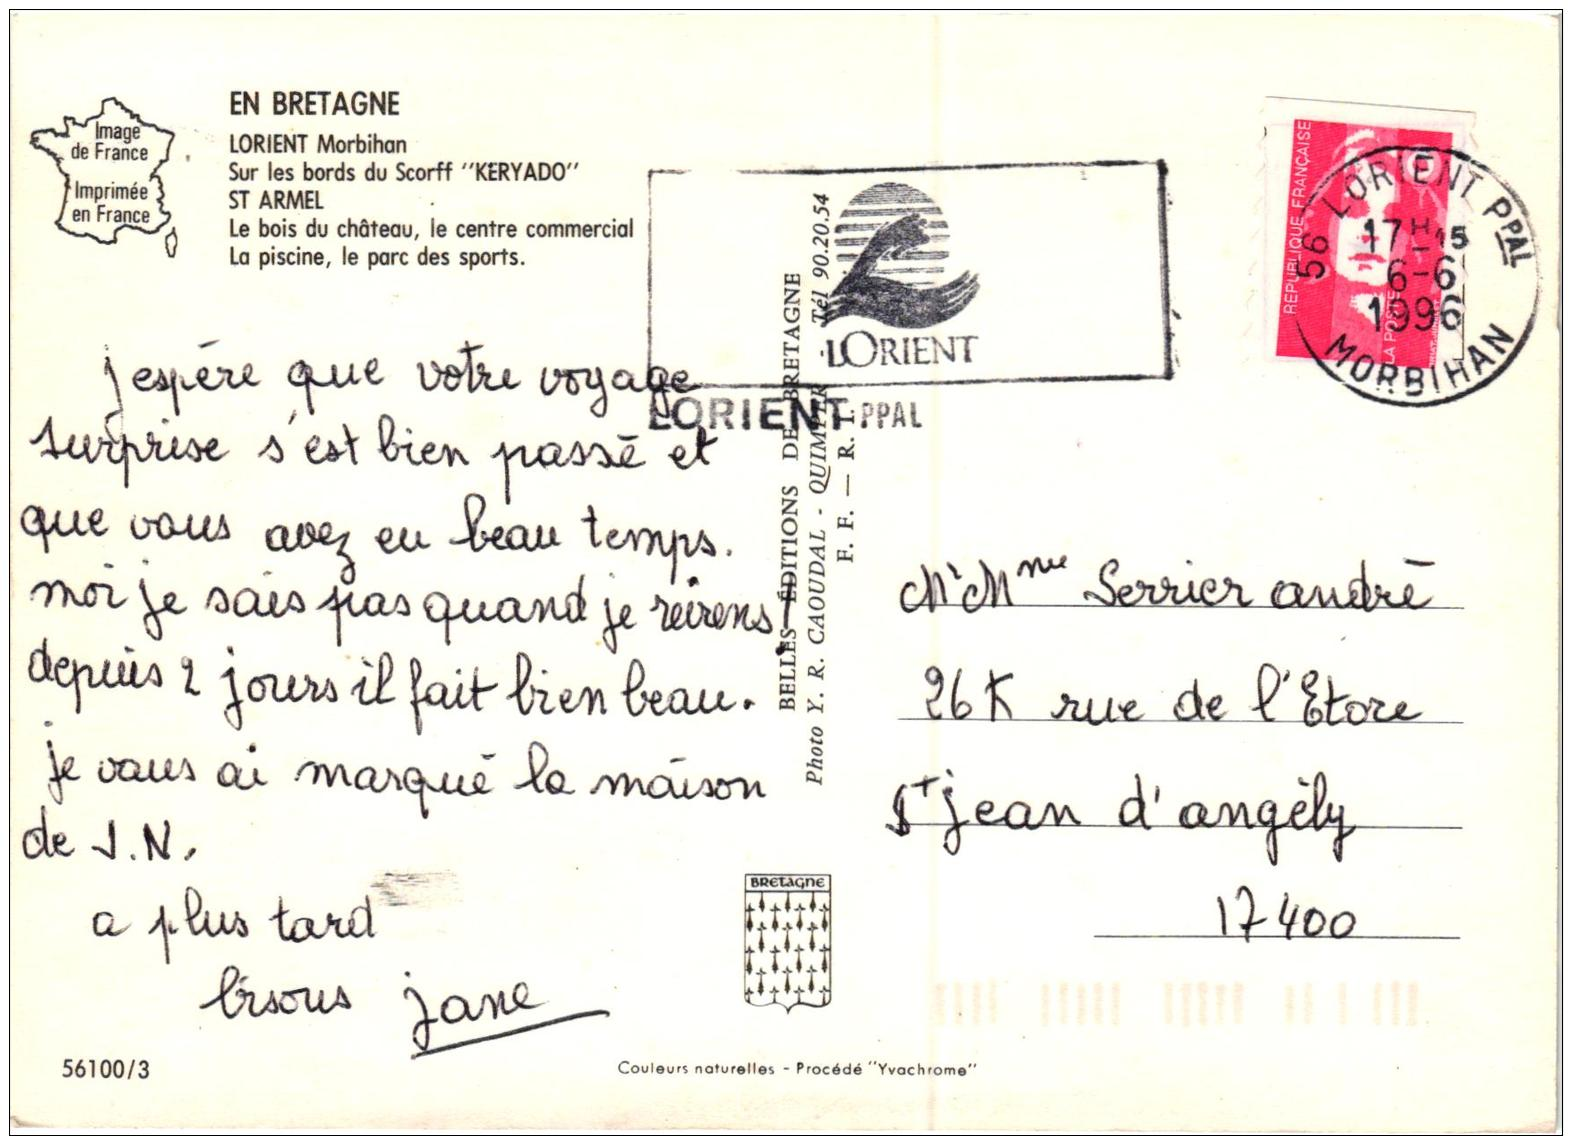 Image
de France
Imprimée
en France
EN BRETAGNE
LORIENT Morbihan
Sur les bords du Scorff "KERYADO"
ST ARMEL
Le bois du château, le centre commercial
La piscine, le parc des sports.
j espére que votre voyage
surprise s'est bien passé et
que vous avez eu beau temps.
moi je sais pas quand je reirens!
depuis 2 jours il fait bien beau.
je vous ai marqué la maison
de J.N.
a plus tard
bisous jane
56100/3
BELLES ÉDITIONS DE BRETAGNE
Photo Y. R. CAOUDAL - QUIMPER - Tél 90.20.54
F. F. — R. I.
LORIENT
LORIENT PPAL
RÉPUBLIQUE FRANÇAISE
LA POSTE
56 LORIENT PPAL
17H15
6-6
1996
MORBIHAN
Mr Mme Serrier andré
26 K rue de l'Etore
St jean d'angély
17400
BRETAGNE
Couleurs naturelles - Procédé "Yvachrome"